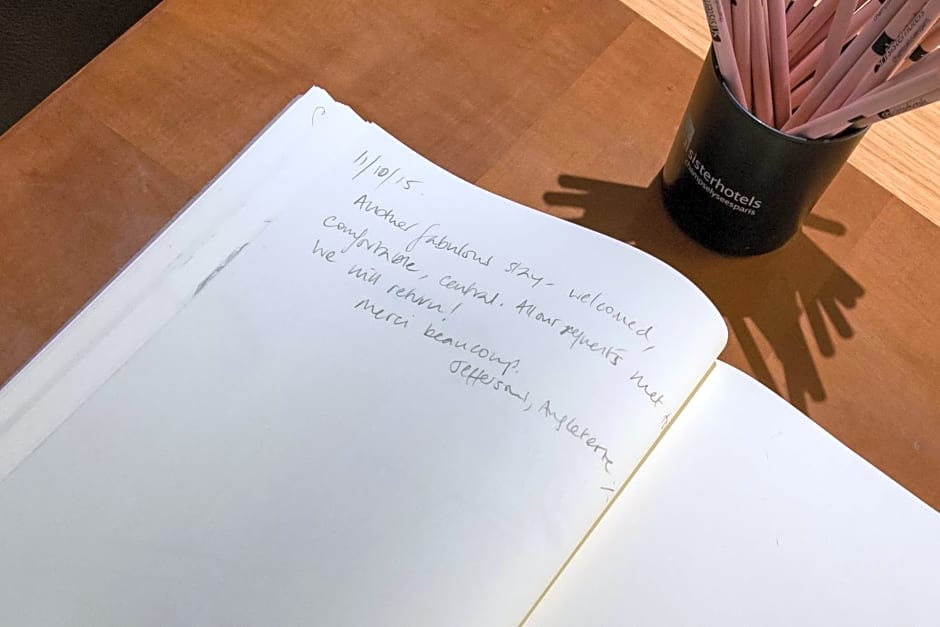 11/10/15.
Another fabulous stay - welcomed,
comfortable, central. All our requests met
We will return!
Merci beaucoup.
Jeffersons, Angleterre
sisterhotels
hampselyseesparis